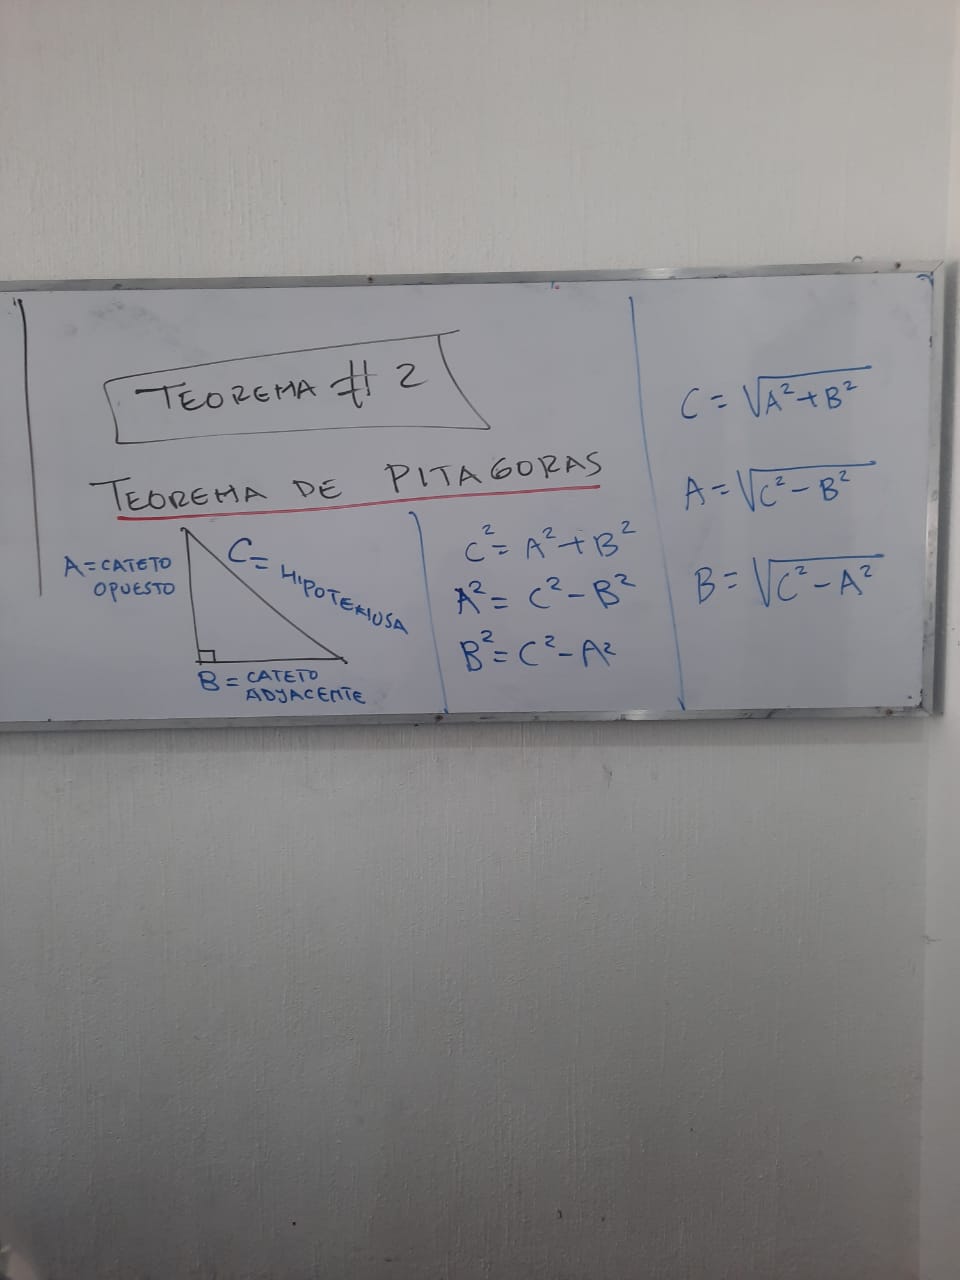 TEOREMA # 2
TEOREMA DE PITAGORAS
A = CATETO
OPUESTO
C =
HIPOTENUSA
B = CATETO
ADYACENTE
C² = A² + B²
A² = C² - B²
B² = C² - A²
C = √A² + B²
A = √C² - B²
B = √C² - A²